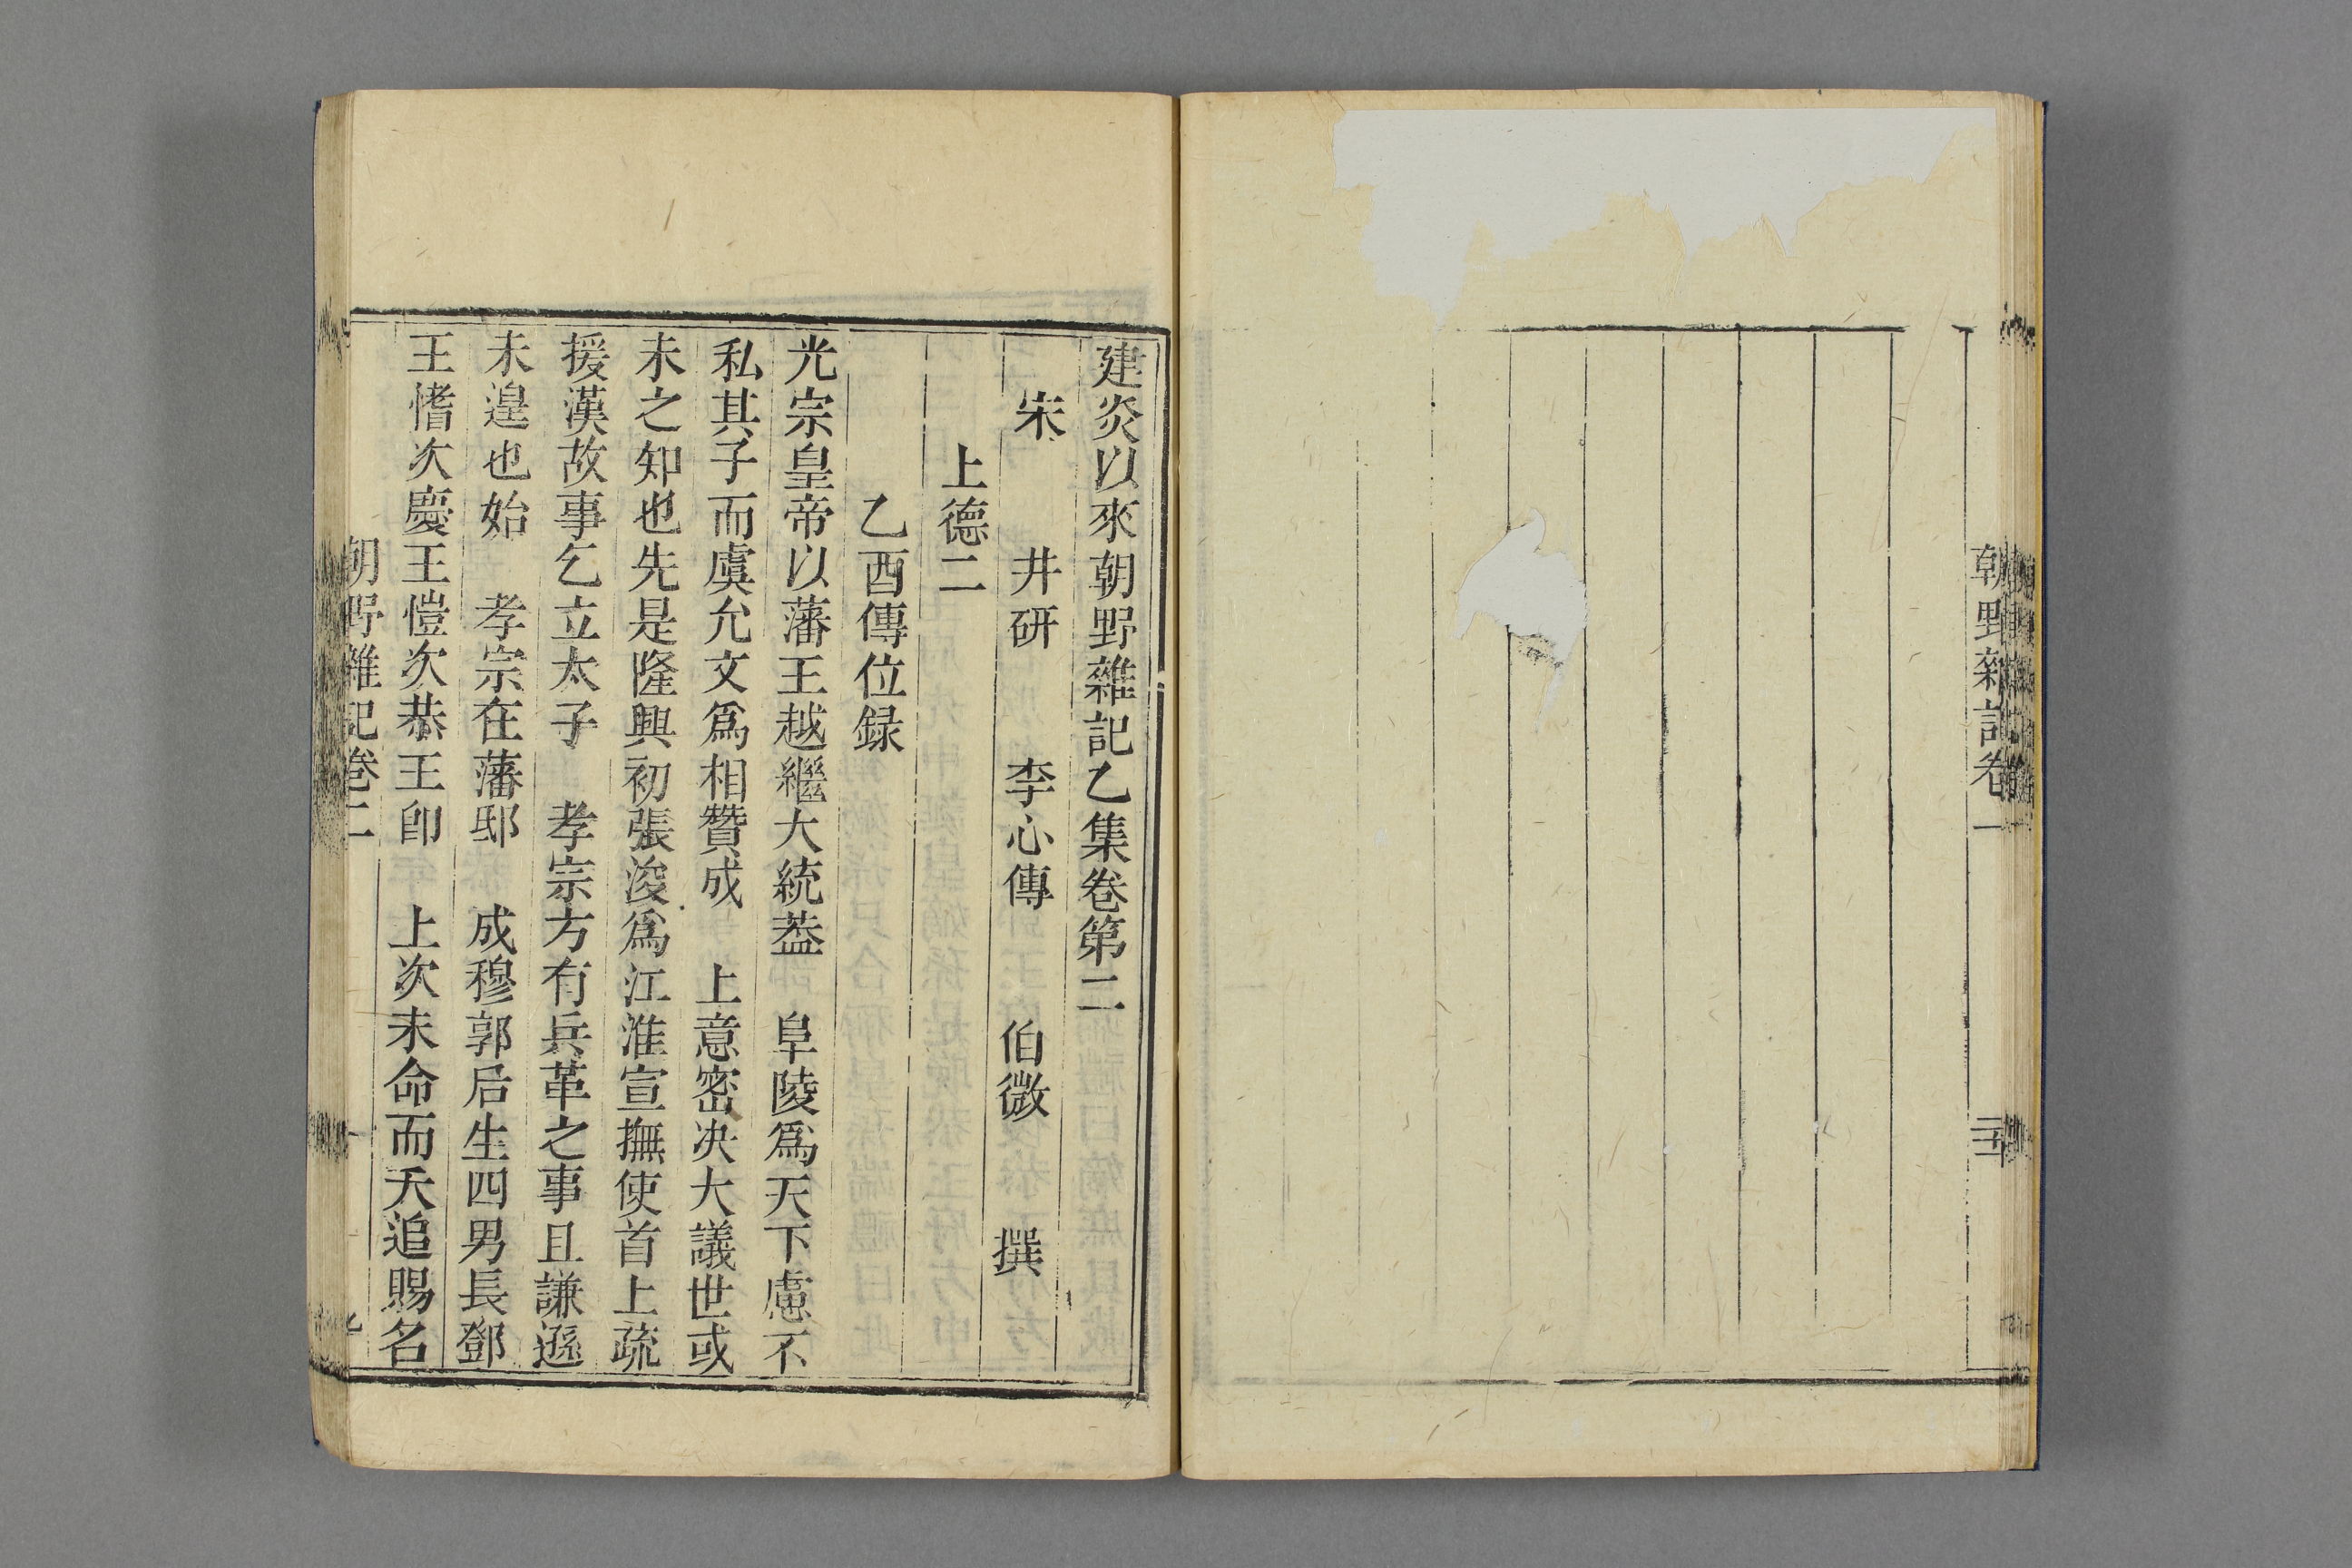 朝野雜記卷一
建炎以來朝野雜記乙集卷第二
宋 井研 李心傳 伯微 撰
上德二
乙酉傳位録
光宗皇帝以藩王越繼大統葢 阜陵爲天下慮不
私其子而虞允文爲相贊成 上意密决大議世或
未之知也先是隆興初張浚爲江淮宣撫使首上疏
援漢故事乞立太子 孝宗方有兵革之事且謙遜
未遑也始 孝宗在藩邸 成穆郭后生四男長鄧
王愭次慶王愷次恭王卽 上次未命而夭追賜名
朝野雜記卷二